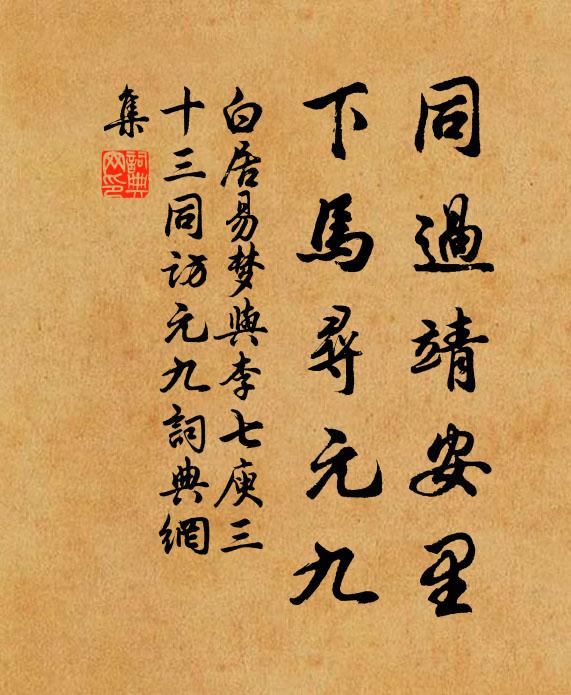 同過靖安里
下馬尋元九
白居易梦與李七庾三
十三同訪元九詞典網
集
詞典
网印